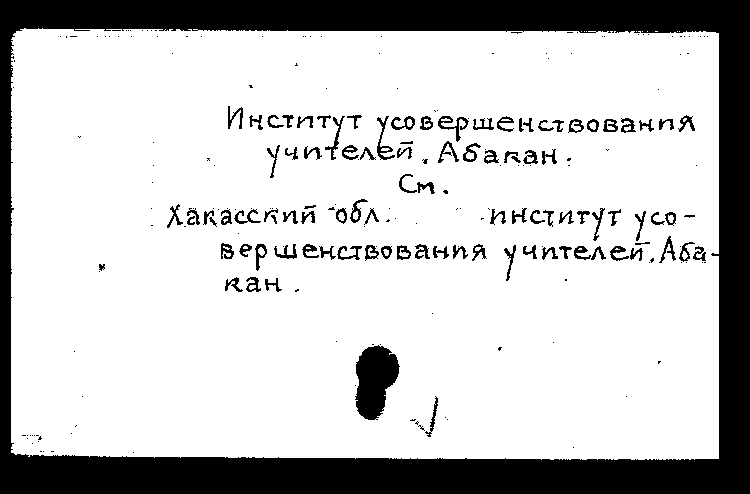 Институт усовершенствования
учителей. Абакан.
См.
Хакасский обл. институт усо-
вершенствования учителей. Аба-
кан.